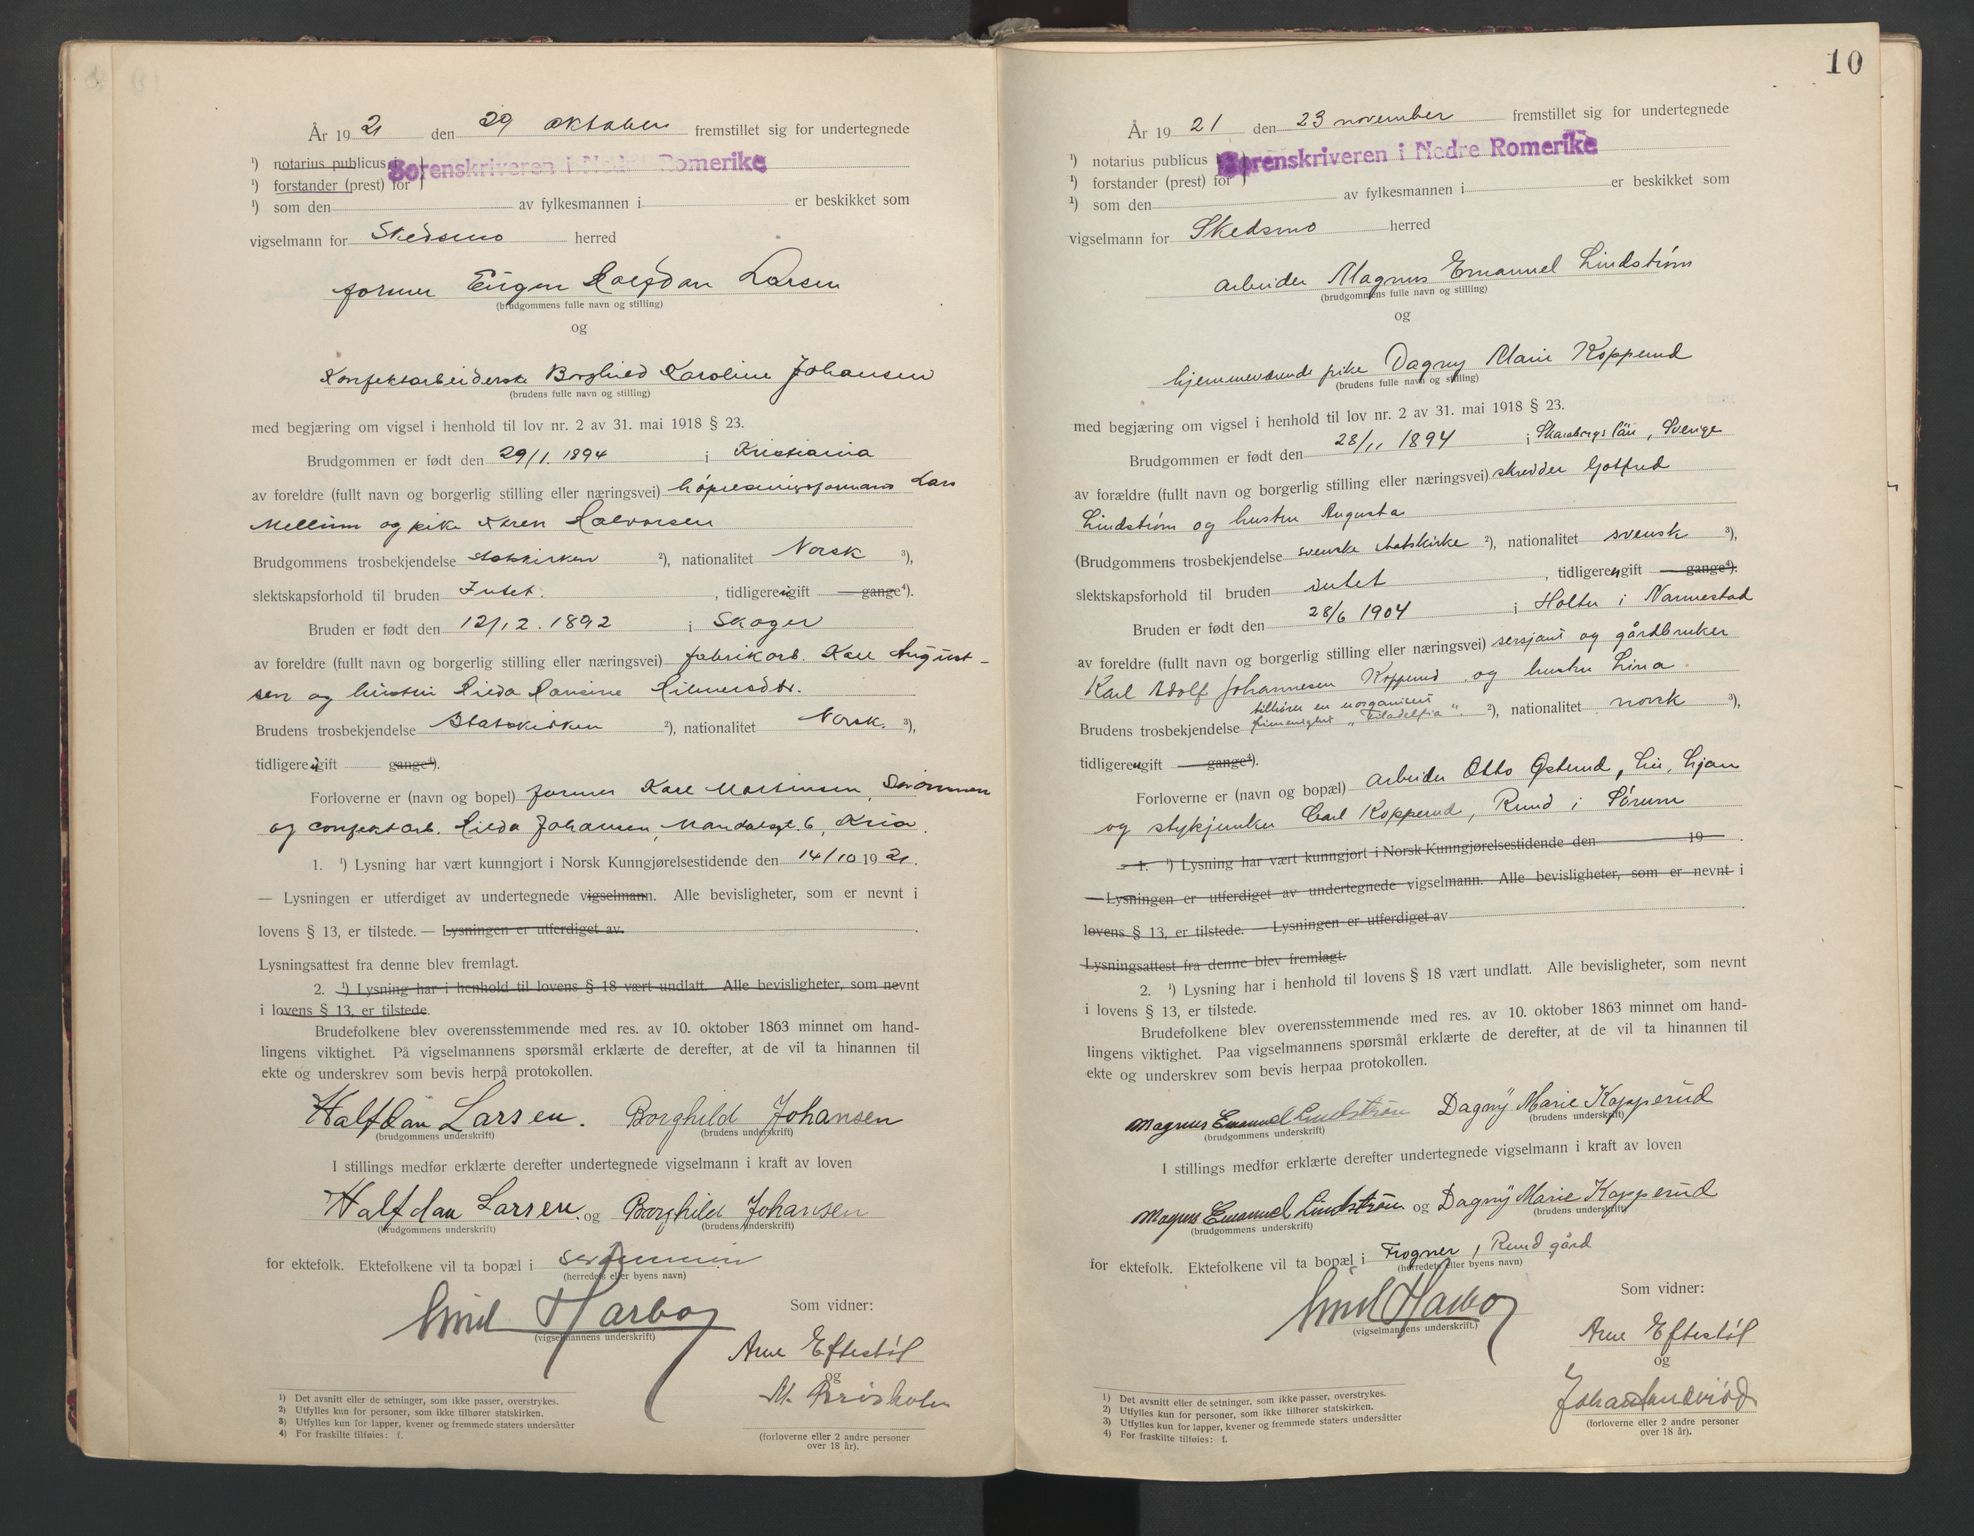 År 1921 den 29 oktober fremstillet sig for undertegnede
¹) notarius publicus i
Sorenskriveren i Nedre Romerike
¹) forstander (prest) for
¹) som den av fylkesmannen i er beskikket som
vigselmann for Skedsmo herred
former Eugen Halfdan Larsen
(brudgommens fulle navn og stilling)
og
Konfektarbeiderske Borghild Karoline Johansen
(brudens fulle navn og stilling)
med begjæring om vigsel i henhold til lov nr. 2 av 31. mai 1918 § 23.
Brudgommen er født den 29/1. 1894 i Kristiania
av foreldre (fullt navn og borgerlig stilling eller næringsvei) Lars
Mellum og pike Halvorsen
Brudgommens trosbekjendelse statskirken ²), nationalitet Norsk ³),
slektskapsforhold til bruden Intet. , tidligere ugift gange⁴).
Bruden er født den 12/12. 1892 i Skoger
av foreldre (fullt navn og borgerlig stilling eller næringsvei) fabrikarb. Karl August-
sen og hustru Hilda Hansine Hilmersdtr.
Brudens trosbekjendelse Statskirken ²), nationalitet Norsk. ³),
tidligere ugift gange⁴).
Forloverne er (navn og bopel) former Karl Martinsen, Strømmen
og confektarb. Hilda Johansen, Mandalsgt. 6, Kria.
1. ¹) Lysning har vært kunngjort i Norsk Kunngjørelsestidende den 14/10 1921.
— Lysningen er utferdiget av undertegnede vigselmann. Alle bevisligheter, som er nevnt i
lovens § 13, er tilstede. — Lysningen er utferdiget av.
Lysningsattest fra denne blev fremlagt.
2. ¹) Lysning har i henhold til lovens § 18 vært undlatt. Alle bevisligheter, som nevnt
i lovens § 13, er tilstede.
Brudefolkene blev overensstemmende med res. av 10. oktober 1863 minnet om hand-
lingens viktighet. På vigselmannens spørsmål erklærte de derefter, at de vil ta hinannen til
ekte og underskrev som bevis herpå protokollen.
Halfdan Larsen. Borghild Johansen
(brudgommens underskrift) (brudens underskrift)
I stillings medfør erklærte derefter undertegnede vigselmann i kraft av loven
Halfdan Larsen. og Borghild Johansen
(brudgommens underskrift) (brudens underskrift)
for ektefolk. Ektefolkene vil ta bopæl i
(herredets eller byens navn)
Emil Harboy
(vigselmannens underskrift)
Som vidner:
Arne Eftestøl
og
(forloverne eller 2 andre personer
over 18 år).
¹) Det avsnitt eller de setninger, som ikke passer, overstrykes.
²) Utfylles kun for personer, som ikke tilhører statskirken.
³) Utfylles kun for lapper, kvener og fremmede staters undersåtter
⁴) For fraskilte tilføies: f.
10
År 1921 den 23 november fremstillet sig for undertegnede
¹) notarius publicus
Sorenskriveren i Nedre Romerike
¹) forstander (prest) for
¹) som den av fylkesmannen i er beskikket som
vigselmann for Skedsmo herred
arbeider Magnus Emanuel Lindstrøm
(brudgommens fulle navn og stilling)
og
hjemmeværende pike Dagny Marie Kopperud
(brudens fulle navn og stilling)
med begjæring om vigsel i henhold til lov nr. 2 av 31. mai 1918 § 23.
Brudgommen er født den 28/11 1894 i Skaraborgs län, Sverige
av forældre (fullt navn og borgerlig stilling eller næringsvei) skredder Gotfred
Lindstrøm og hustru Augusta
(Brudgommens trosbekjendelse svenske statskirke ²), nationalitet svensk ³),
slektskapsforhold til bruden intet , tidligere ugift gange⁴).
Bruden er født den 28/6 1904 i Holter i Nannestad
av foreldre (fullt navn og borgerlig stilling eller næringsvei) sersjant og gårdbruker
Karl Adolf Johannesen Kopperud og hustru Lina.
tilhører en uorganisert
Brudens trosbekjendelse frimenighet „Filadelfia“. ²), nationalitet norsk ³),
tidligere ugift gange⁴).
Forloverne er (navn og bopæl) arbeider Otto Østerud, Lie, Ljan
og stykjunker Carl Kopperud, Ruud i Sørum
1. ¹) Lysning har vært kunngjort i Norsk Kunngjørelsestidende den 19 .
— Lysningen er utferdiget av undertegnede vigselmann. Alle bevisligheter, som er nevnt i
lovens § 13, er tilstede. — Lysningen er utferdiget av
Lysningsattest fra denne blev fremlagt.
2. ¹) Lysning har i henhold til lovens § 18 vært undlatt. Alle bevisligheter, som nevnt
i lovens § 13, er tilstede.
Brudefolkene blev overensstemmende med res. av 10. oktober 1863 minnet om hand-
lingens viktighet. Paa vigselmannens spørsmål erklærte de derefter, at de vil ta hinannen til
ekte og underskrev som bevis herpaa protokollen.
Magnus Emanuel Lindstrøm Dagny Marie Kopperud
(brudgommens underskrift) (brudens underskrift)
I stillings medfør erklærte derefter undertegnede vigselmann i kraft av loven
Magnus Emanuel Lindstrøm og Dagny Marie Kopperud
(brudgommens underskrift) (brudens underskrift)
for ektefolk. Ektefolkene vil ta bopæl i Frogner, Ruud gård
(herredets eller byens navn)
Emil Harboy
(vigselmannens underskrift.)
Som vidner:
Arne Eftestøl
og
(forloverne eller 2 andre personer
over 18 år).
¹) Det avsnitt eller de setninger, som ikke passer, overstrykes.
²) Utfylles kun for personer, som ikke tilhører statskirken.
³) Utfylles kun for lapper, kvener og fremmede staters undersåtter
⁴) For fraskilte tilføies: f.